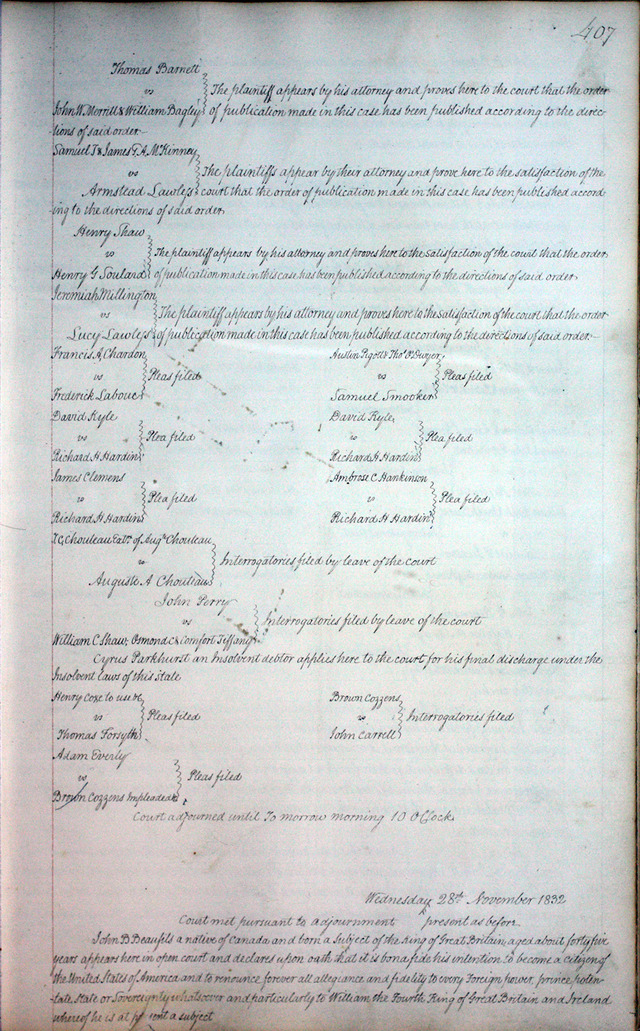 407
Thomas Barnett
vs
The plaintiff appears by his attorney and proves here to the court that the order
John W. Merrill & William Bagley of publication made in this case has been published according to the direc-
tions of said order
Samuel T & James T. A. McKinney
vs
The plaintiffs appear by their attorney and prove here to the satisfaction of the
Armstead Lawless court that the order of publication made in this case has been published accord
ing to the directions of said order
Henry Shaw
vs The plaintiff appears by his attorney and proves here to the satisfaction of the court that the order
Henry G Soulard of publication made in this case has been published according to the directions of said order
Jeremiah Millington
vs The plaintiff appears by his attorney and proves here to the satisfaction of the court that the order
Lucy Lawless of publication made in this case has been published according to the directions of said order
Francis A Chardon
vs Pleas filed
Frederick Laboue
Austin Pigott & Thos. Dwyer
vs Pleas filed
Samuel Smooker
David Kyle
vs Plea filed
Richard H Hardin
David Kyle
vs Plea filed
Richard H Hardin
James Clemens
vs Plea filed
Richard H Hardin
Ambrose C Hankinson
vs Plea filed
Richard H Hardin
Chouteau Extr. of Augte Chouteau
vs Interrogatories filed by leave of the court
Auguste A Chouteau
John Perry
vs Interrogatories filed by leave of the court
William C Shaw, Osmond C & Comfort Tiffany
Cyrus Parkhurst an Insolvent debtor applies here to the court for his final discharge under the
Insolvent laws of this State
Henry Coxe to use &c
vs Pleas filed
Thomas Forsyth
Brown Cozzens
vs Interrogatories filed
John Carrell
Adam Everly
vs Pleas filed
Brown Cozzens Impleaded &c
Court adjourned until To morrow morning 10 O'Clock
Wednesday 28th November 1832
Court met pursuant to adjournment present as before
John B Beaufels a native of Canada and born a Subject of the King of Great Britain, aged about forty five
years appears here in open court and declares upon oath that it is bona fide his intention to become a citizen of
the United States of America and to renounce forever all allegiance and fidelity to every Foreign power, prince, poten-
tate, State or Sovereignty whatsoever and particularly to William the Fourth King of Great Britain and Ireland
whereof he is at present a subject